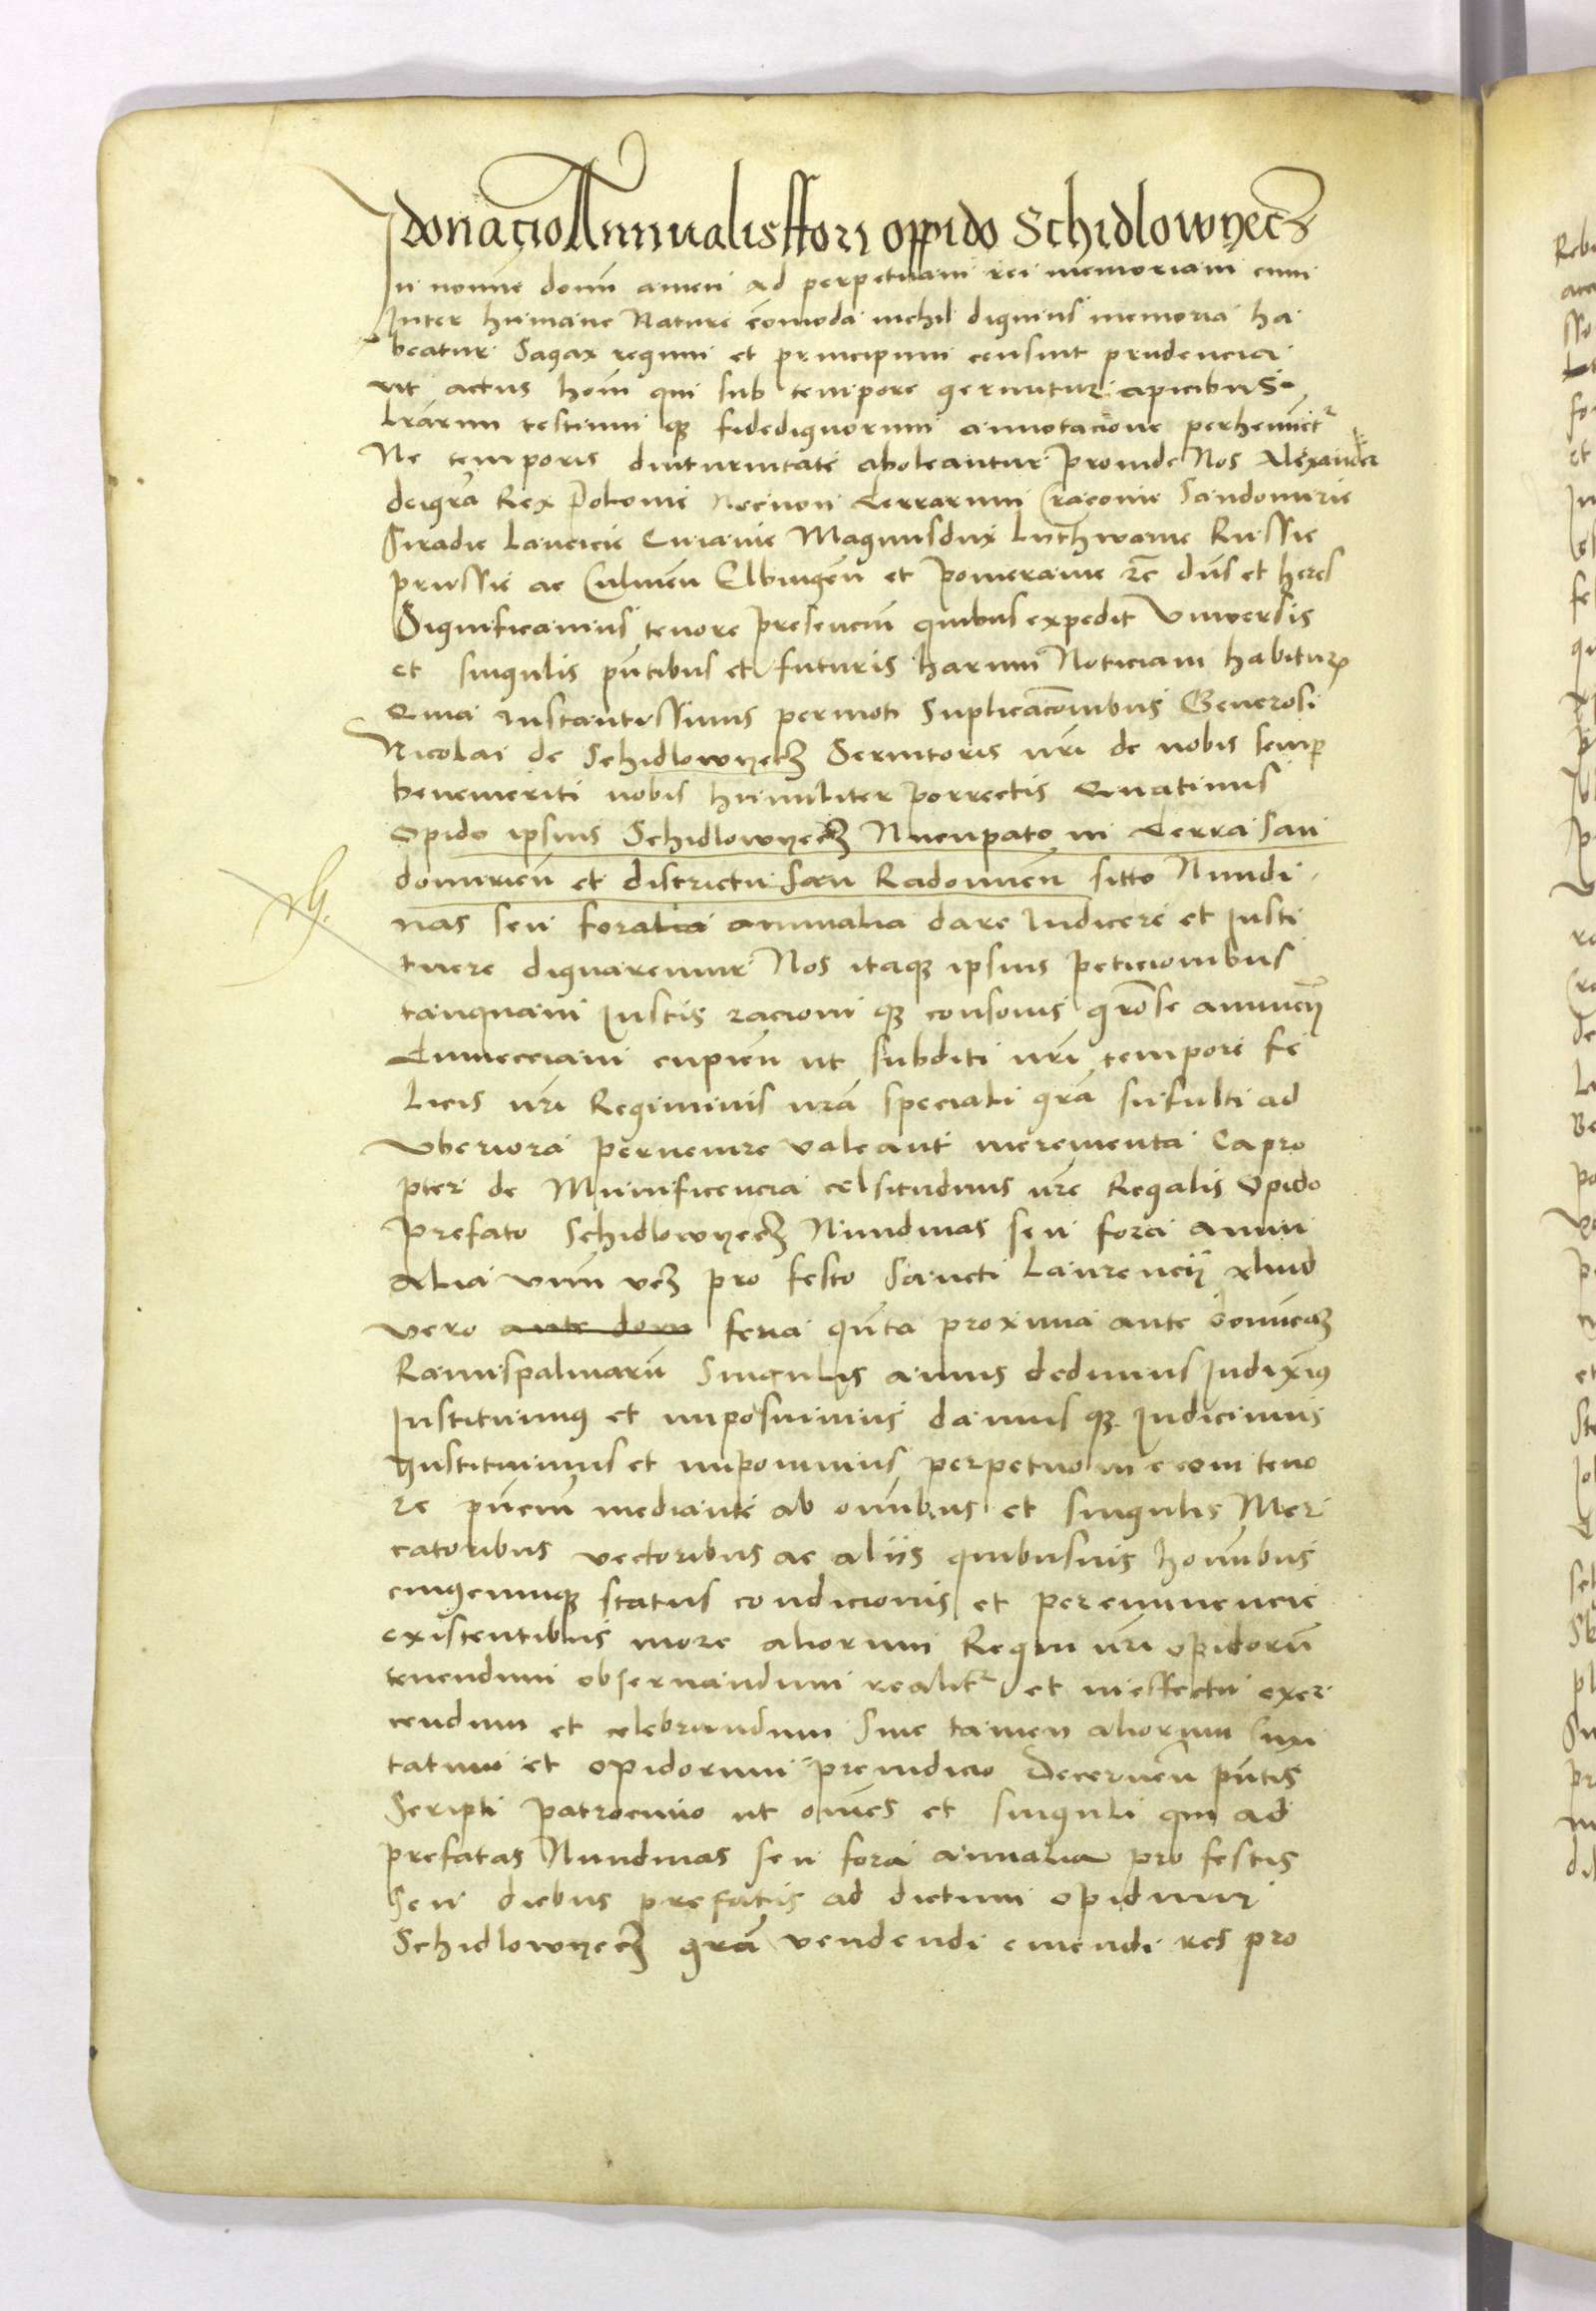 donacio Annualis ffori oppido Schidlowyecz
In nomine domi amen Ad perpetuam rei memoriam cum
Inter humane Nature comoda nichil dignius memoria ha
beatur Sagax regum et principum censuit prudencia
ut actus hom qui sub tempore geruntur apicibus
lrarum testium qz fidedignorum annotacione perhennetr
Ne temporis diuturnitate aboleantur Proinde Nos Alexander
dei gra Rex Polonie Necnon Terrarum Cracovie Sandomirie
Siradie Lancicie Cuiavie Magnusdux Lythwanie Russie
Prussie ac Culmen Elbingen et Pomeranie zc dns et heres
Significamus tenore presencium quibus expedit Universis
et singulis pntibus et futuris harum Noticiam habituris
Quia instantissimis permoti Suplicacionibus Generosi
Nicolai de Schidlowyecz Servitoris nri de nobis semp
benemeriti nobis humiliter porrectis Quatinus
Opido ipsius Schidlowyecz Nuncupato in Terra San
domirien et districtu San Radomien sitto Nundi
nas seu foralia annualia dare Indicere et Insti
tuere dignaremur Nos itaqz ipsius peticionibus
tanquam Iustis racioni qz consonis grose annuen
Tum eciam cupien ut subditi nri tempore fe
licis nri Regiminis nra speciali gra sufulti ad
uberiora pervenire valeant incrementa Eapro
pter de Munificencia celsitudinis nre Regalis Opido
prefato Schidlowyecz Nundinas seu fora annu
alia unum vcz pro festo Sancti Laurencii Aliud
vero ante dom feria qnta proxima ante Dominicam
Ramispalmaru Singulis annis dedimus Indiximus
Instituimus et imposuimus damus qz Indicimus
Instituimus et imponimus perpetuo in euum teno
re pncium mediante ab omnibus et singulis Mer
catoribus vectoribus ac aliis quibusuis hominibus
cuiuscumqz status condicionis et pereminencie
existentibus more aliorum Regni nri opidorum
tenendum observandum realitr et in effectu exer
cendum et celebrandum Sine tamen aliorum Civi
tatum et opidorum preiudicio Decernen pntis
Scripti patrocinio ut omnes et singuli qui ad
prefatas Nundinas seu fora annualia pro festis
seu diebus prefatis ad dictum opidum
Schidlowyecz gra vendendi emendi res pro